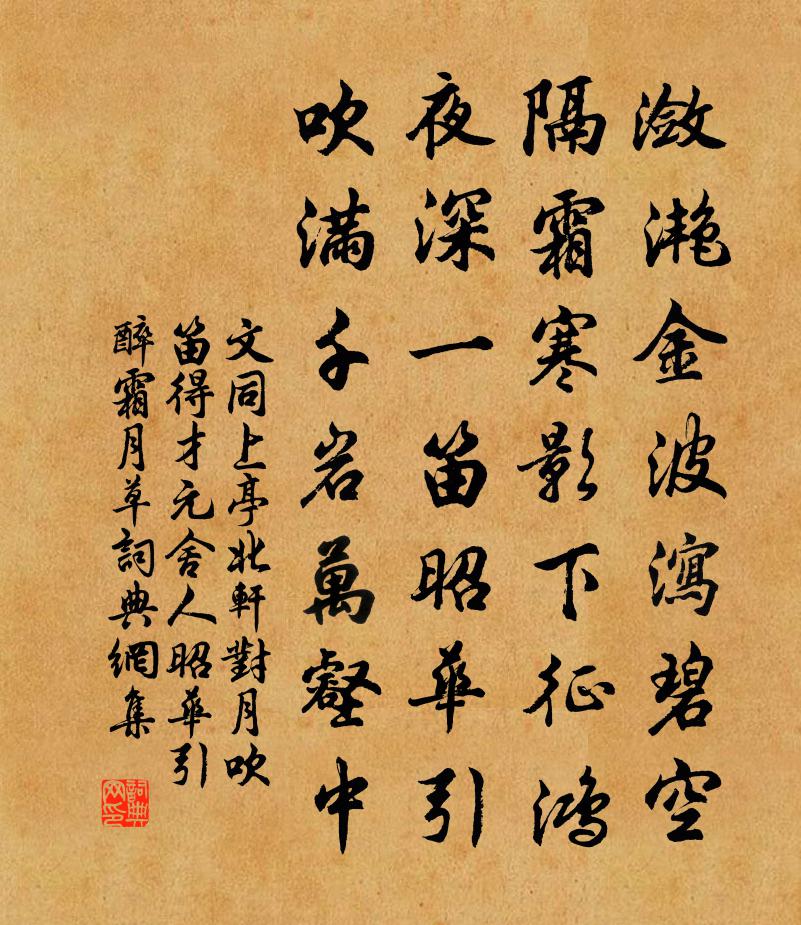 瀲滟金波瀉碧空
隔霜寒影下征鴻
夜深一笛昭華引
吹滿千岩萬壑中
文同上亭北軒對月吹
笛得才元舍人昭華引
醉霜月草詞典網集
詞典
网印